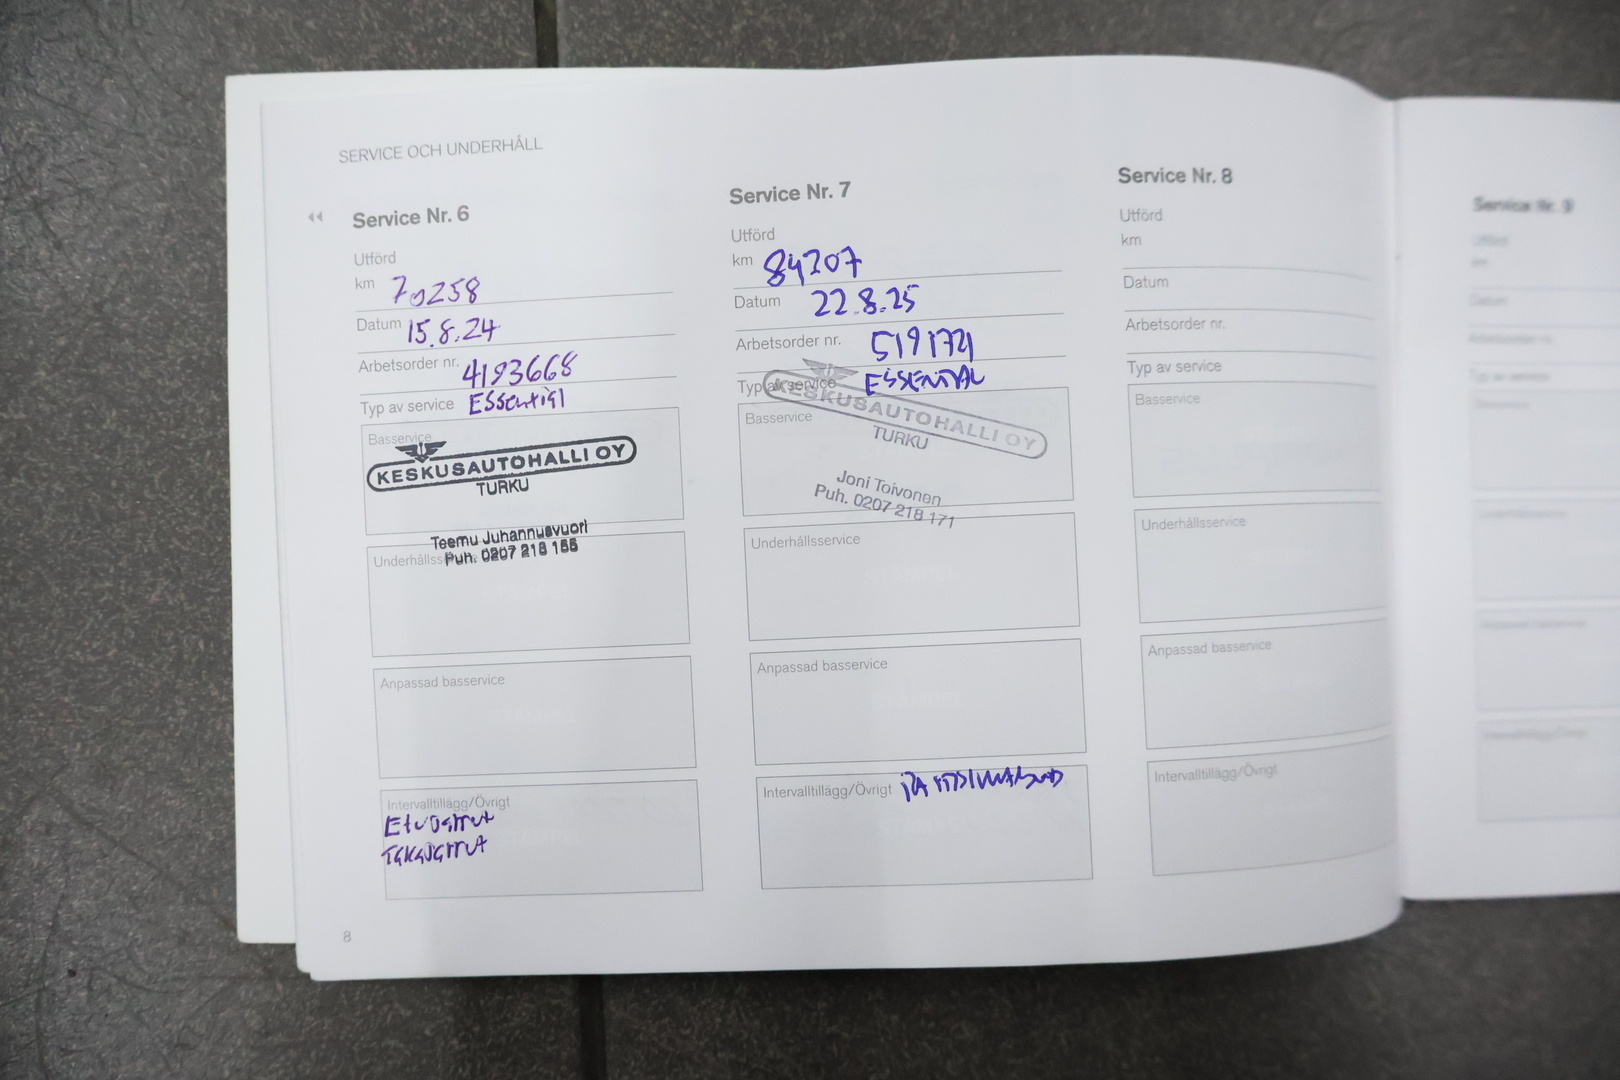 SERVICE OCH UNDERHÅLL
Service Nr. 6
Utförd
km 70258
Datum 15.8.24
Arbetsorder nr. 4193668
Typ av service Essential
Basservice
KESKUSAUTOHALLI OY
TURKU
Teemu Juhannusvuori
Puh. 0207 218 155
Underhålls
Anpassad basservice
Intervalltillägg/Övrigt
Etujarrut
Takajarrut
8
Service Nr. 7
Utförd
km 84207
Datum 22.8.25
Arbetsorder nr.
Typ av service ESSENTIAL
KESKUSAUTOHALLI OY
TURKU
Basservice
Joni Toivonen
Puh. 0207 218 171
Underhållsservice
Anpassad basservice
Intervalltillägg/Övrigt
Service Nr. 8
Utförd
km
Datum
Arbetsorder nr.
Typ av service
Basservice
Underhållsservice
Anpassad basservice
Intervalltillägg/Övrigt
Service Nr. 9